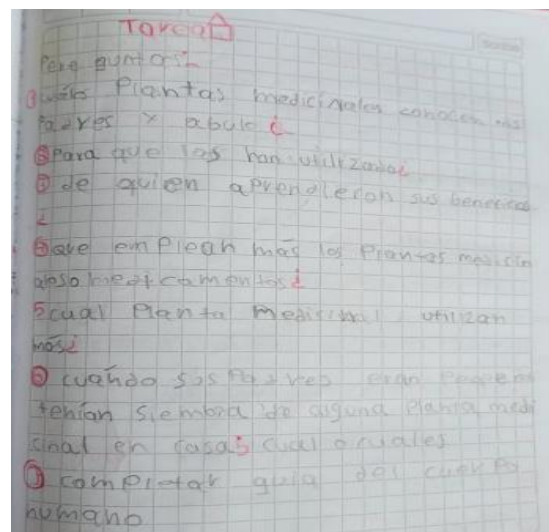 Tarea
Pere guntas:
Plantas medicinales conocen
Padres y abule ¿
③Para que las han utilizado¿
de quien aprendieron sus beneficios
¿
que emplean más las Plantas medicin
¿
5 cual Planta medicinal utilizan
más¿
⑥ cuando sus Padres eran
tenian siembra de alguna Planta medi
cinal en casa¿ cual o cuales
⑦ completar guia del cuerpo
humano